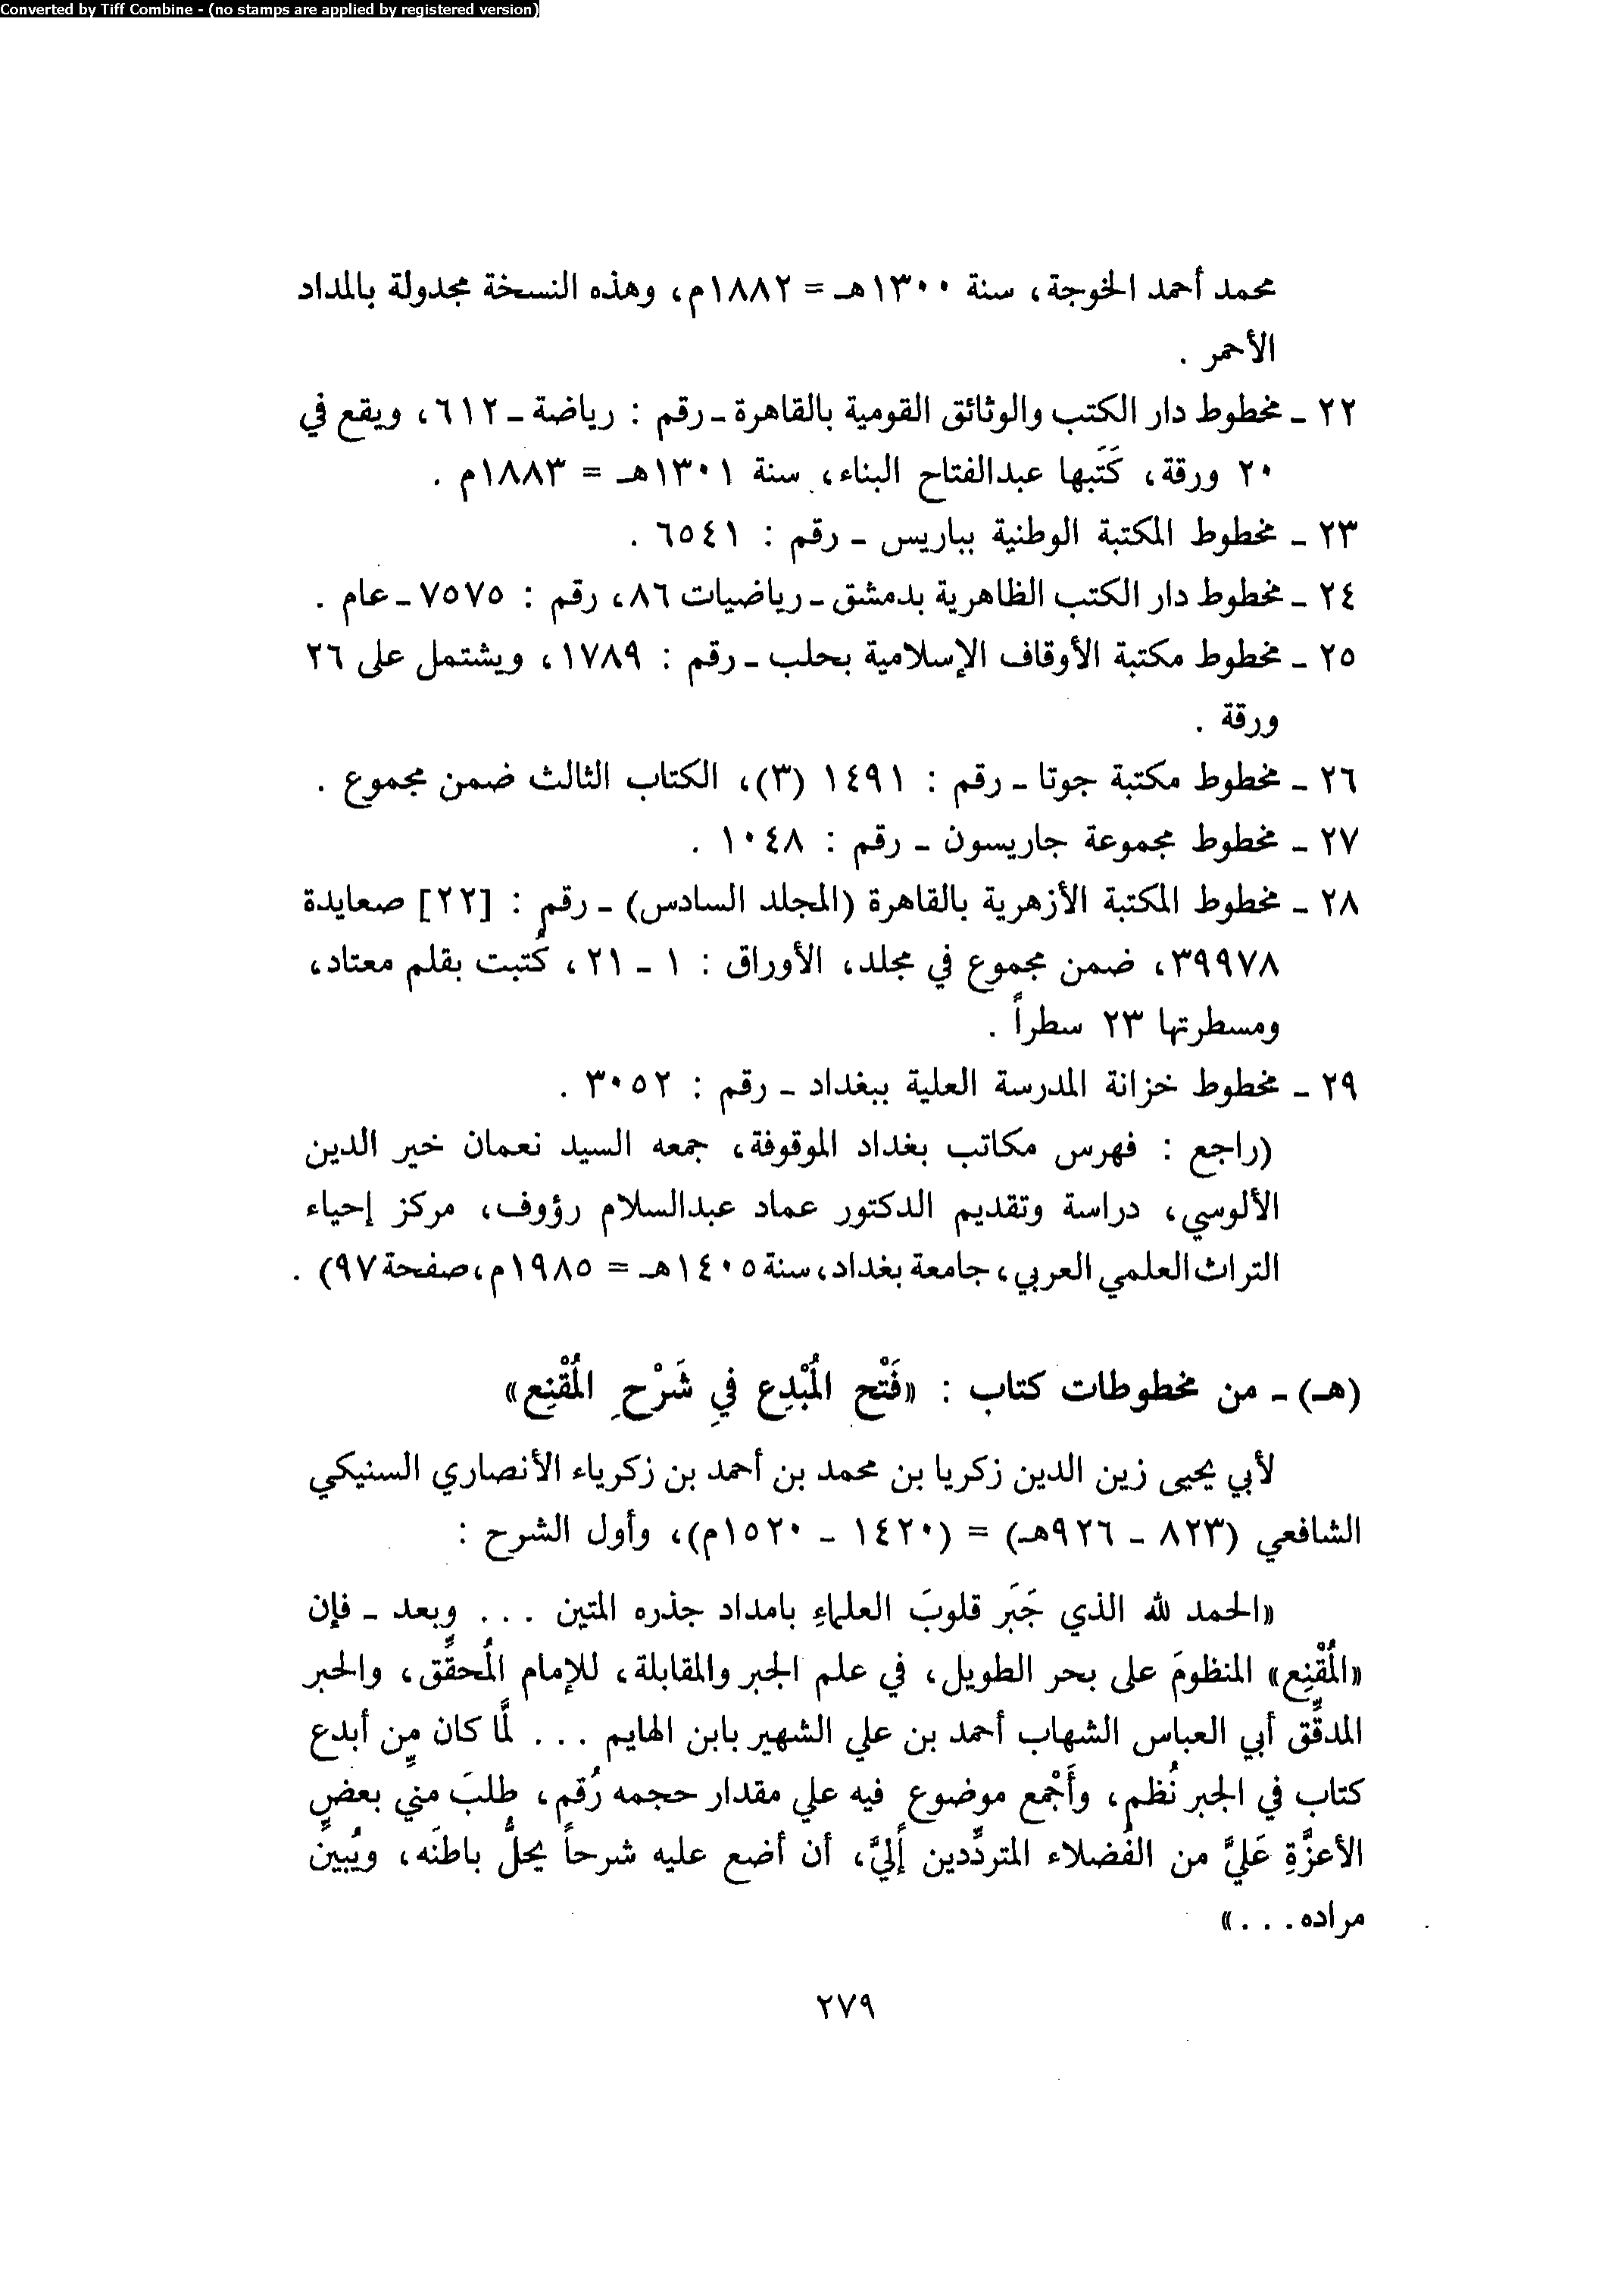 Converted by Tiff Combine - (no stamps are applied by registered version)
محمد أحمد الخوجة، سنة ١٣٠٠هـ = ١٨٨٢م، وهذه النسخة مجدولة بالمداد
الأحمر .
٢٢ ـ مخطوط دار الكتب والوثائق القومية بالقاهرة ـ رقم : رياضة ـ ٦١٢، ويقع في
٢٠ ورقة، كَتَبها عبدالفتاح البناء، سنة ١٣٠١هـ = ١٨٨٣م .
٢٣ ـ مخطوط المكتبة الوطنية بباريس ـ رقم : ٦٥٤١ .
٢٤ ـ مخطوط دار الكتب الظاهرية بدمشق ـ رياضيات ٨٦، رقم : ٧٥٧٥ ـ عام .
٢٥ ـ مخطوط مكتبة الأوقاف الإسلامية بحلب ـ رقم : ١٧٨٩، ويشتمل على ٢٦
ورقة .
٢٦ ـ مخطوط مكتبة جوتا ـ رقم : ١٤٩١ (٣)، الكتاب الثالث ضمن مجموع .
٢٧ ـ مخطوط مجموعة جاريسون ـ رقم : ١٠٤٨ .
٢٨ ـ مخطوط المكتبة الأزهرية بالقاهرة (المجلد السادس) ـ رقم : [٢٢] صعايدة
٣٩٩٧٨، ضمن مجموع في مجلد، الأوراق : ١ ـ ٢١، كُتبت بقلم معتاد،
ومسطرتها ٢٣ سطراً .
٢٩ ـ مخطوط خزانة المدرسة العلية ببغداد ـ رقم : ٣٠٥٢ .
(راجع : فهرس مكاتب بغداد الموقوفة، جمعه السيد نعمان خير الدين
الألوسي، دراسة وتقديم الدكتور عماد عبدالسلام رؤوف، مركز إحياء
التراث العلمي العربي، جامعة بغداد، سنة ١٤٠٥هـ = ١٩٨٥م، صفحة ٩٧) .
(هـ) ـ من مخطوطات كتاب : «فَتْح المُبْدِع فيِ شَرْحِ المُقْنِع»
لأبي يحيى زين الدين زكريا بن محمد بن أحمد بن زكرياء الأنصاري السنيكي
الشافعي (٨٢٣ ـ ٩٢٦هـ) = (١٤٢٠ ـ ١٥٢٠م)، وأول الشرح :
«الحمد لله الذي جَبَر قلوبَ العلماءِ بامداد جذره المتين ... وبعد ـ فإن
«المُقْنِع» المنظومَ على بحر الطويل، في علم الجبر والمقابلة، للإمام المُحقِّق، والحبر
المدقِّق أبي العباس الشهاب أحمد بن علي الشهير بابن الهايم ... لمَّا كان مِن أبدع
كتاب في الجبر نُظم، وأَجْمع موضوع فيه علي مقدار حجمه رُقم، طلبَ مني بعضُ
الأعزَّةِ عَليَّ من الفُضلاء المتردِّدين إليَّ، أن أضع عليه شرحاً يحلُّ باطنَه، ويُبينِّ
مراده...»
٢٧٩